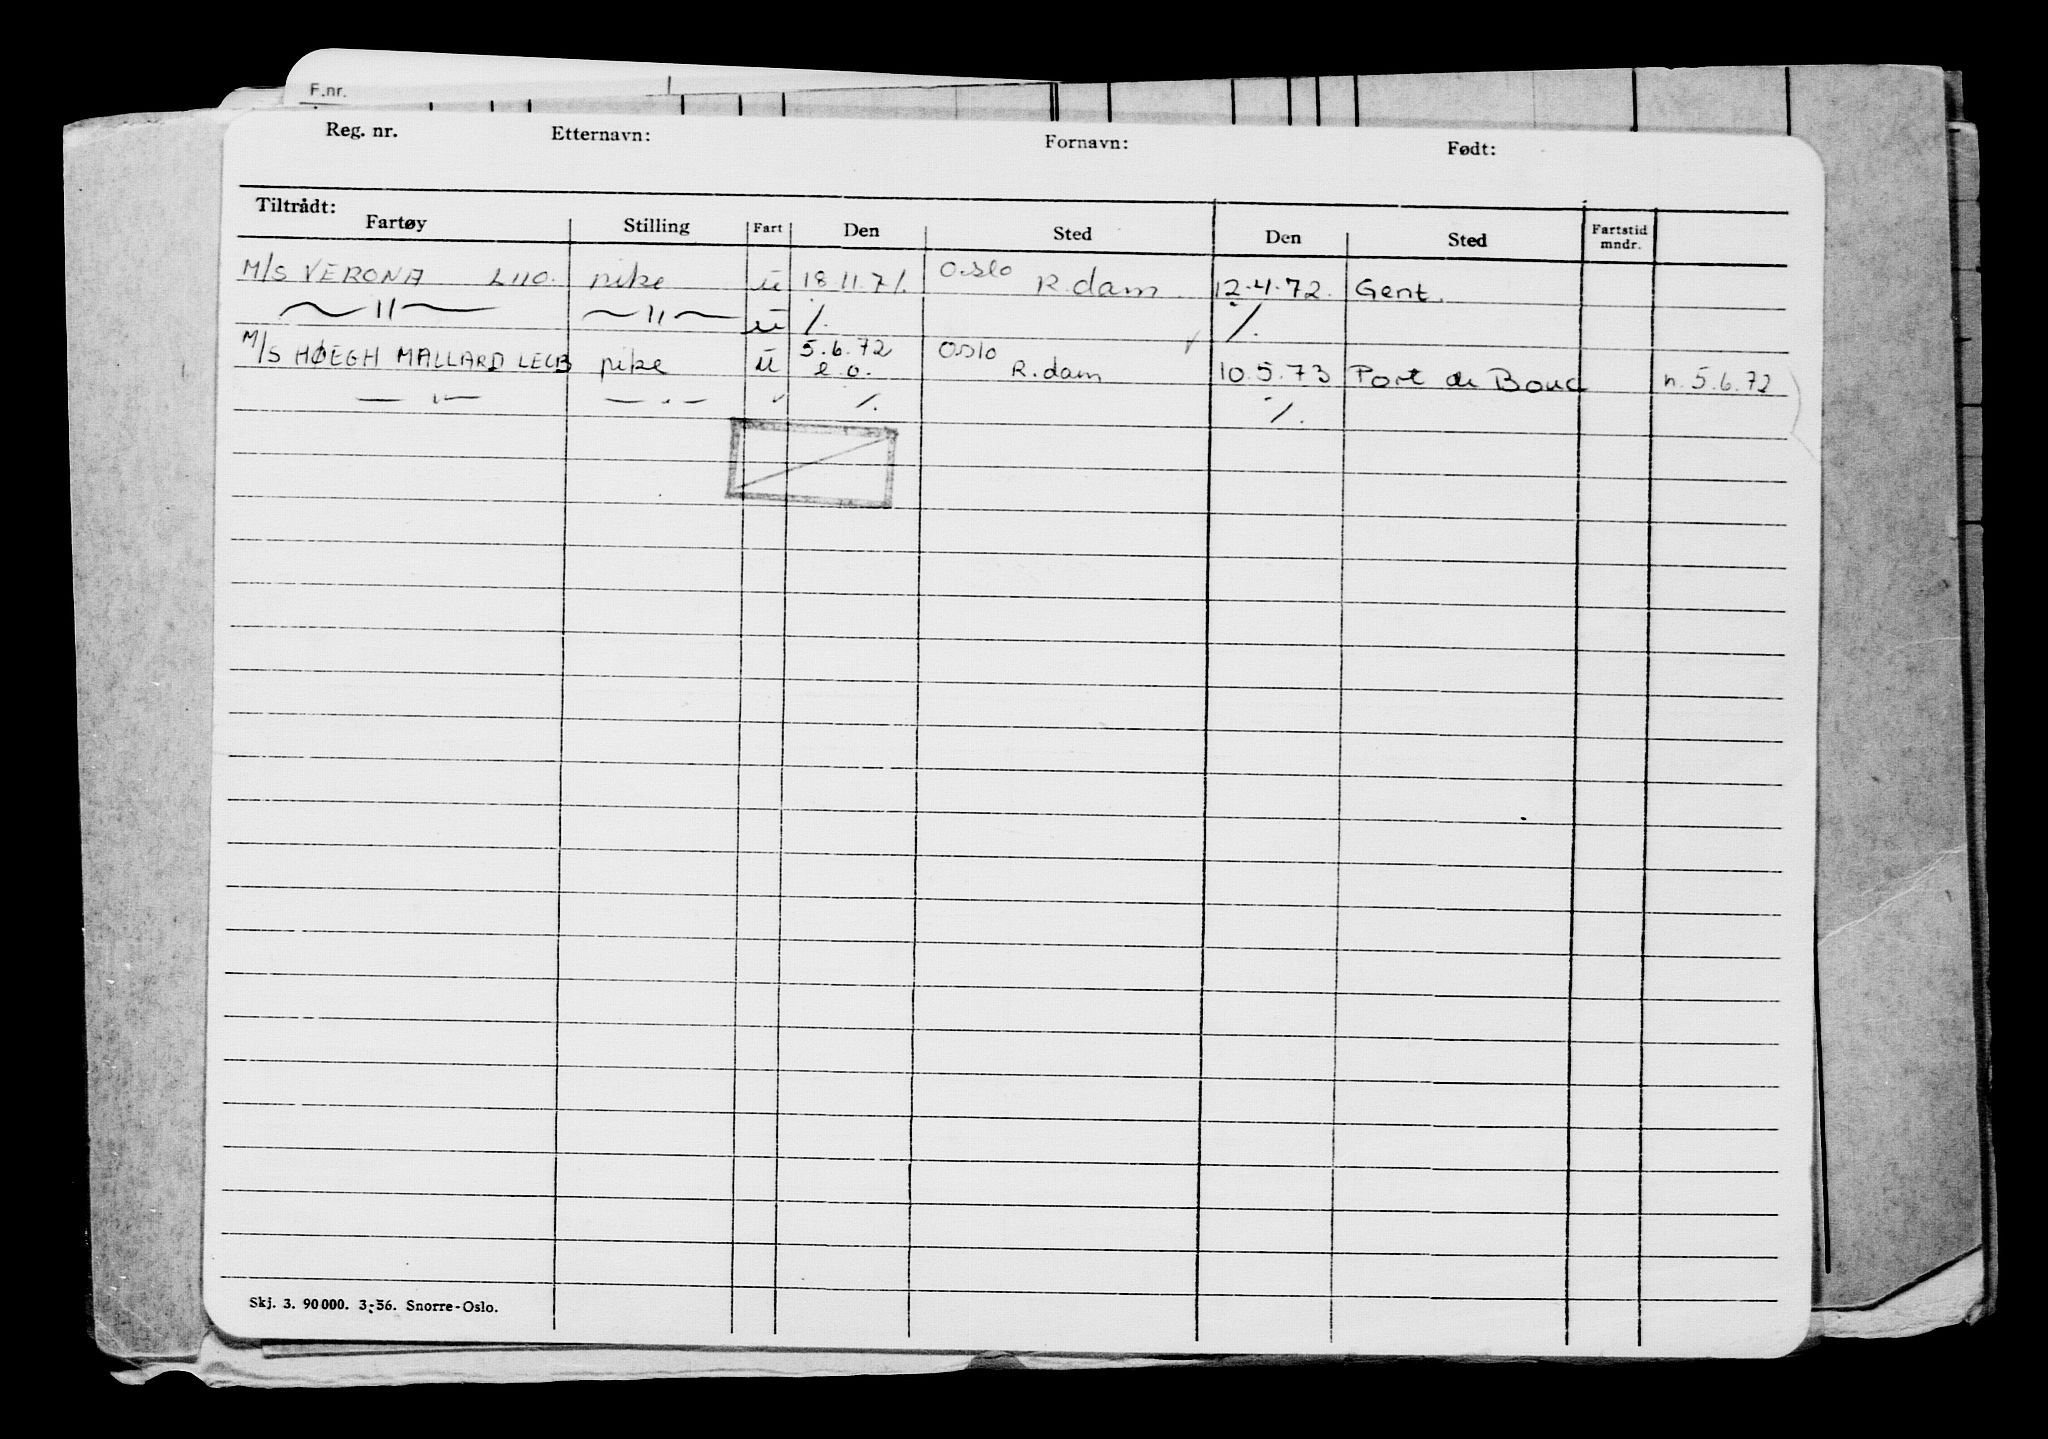 F.nr.
Reg. nr. Etternavn: Fornavn: Født:
Tiltrådt:
Fartøy Stilling Fart Den Sted Den Sted Fartstid mndr.
M/S VERONA LIIO. pike u 18.11.71. Oslo R.dam. 12.4.72. Gent.
〃 〃 u ⁒ ⁒
M/S HØEGH MALLARD LECB pike u 5.6.72 e.o. Oslo R.dam 10.5.73 Port de Bouc n. 5.6.72
〃 〃 〃 ⁒ ⁒
Skj. 3. 90 000. 3-56. Snorre-Oslo.